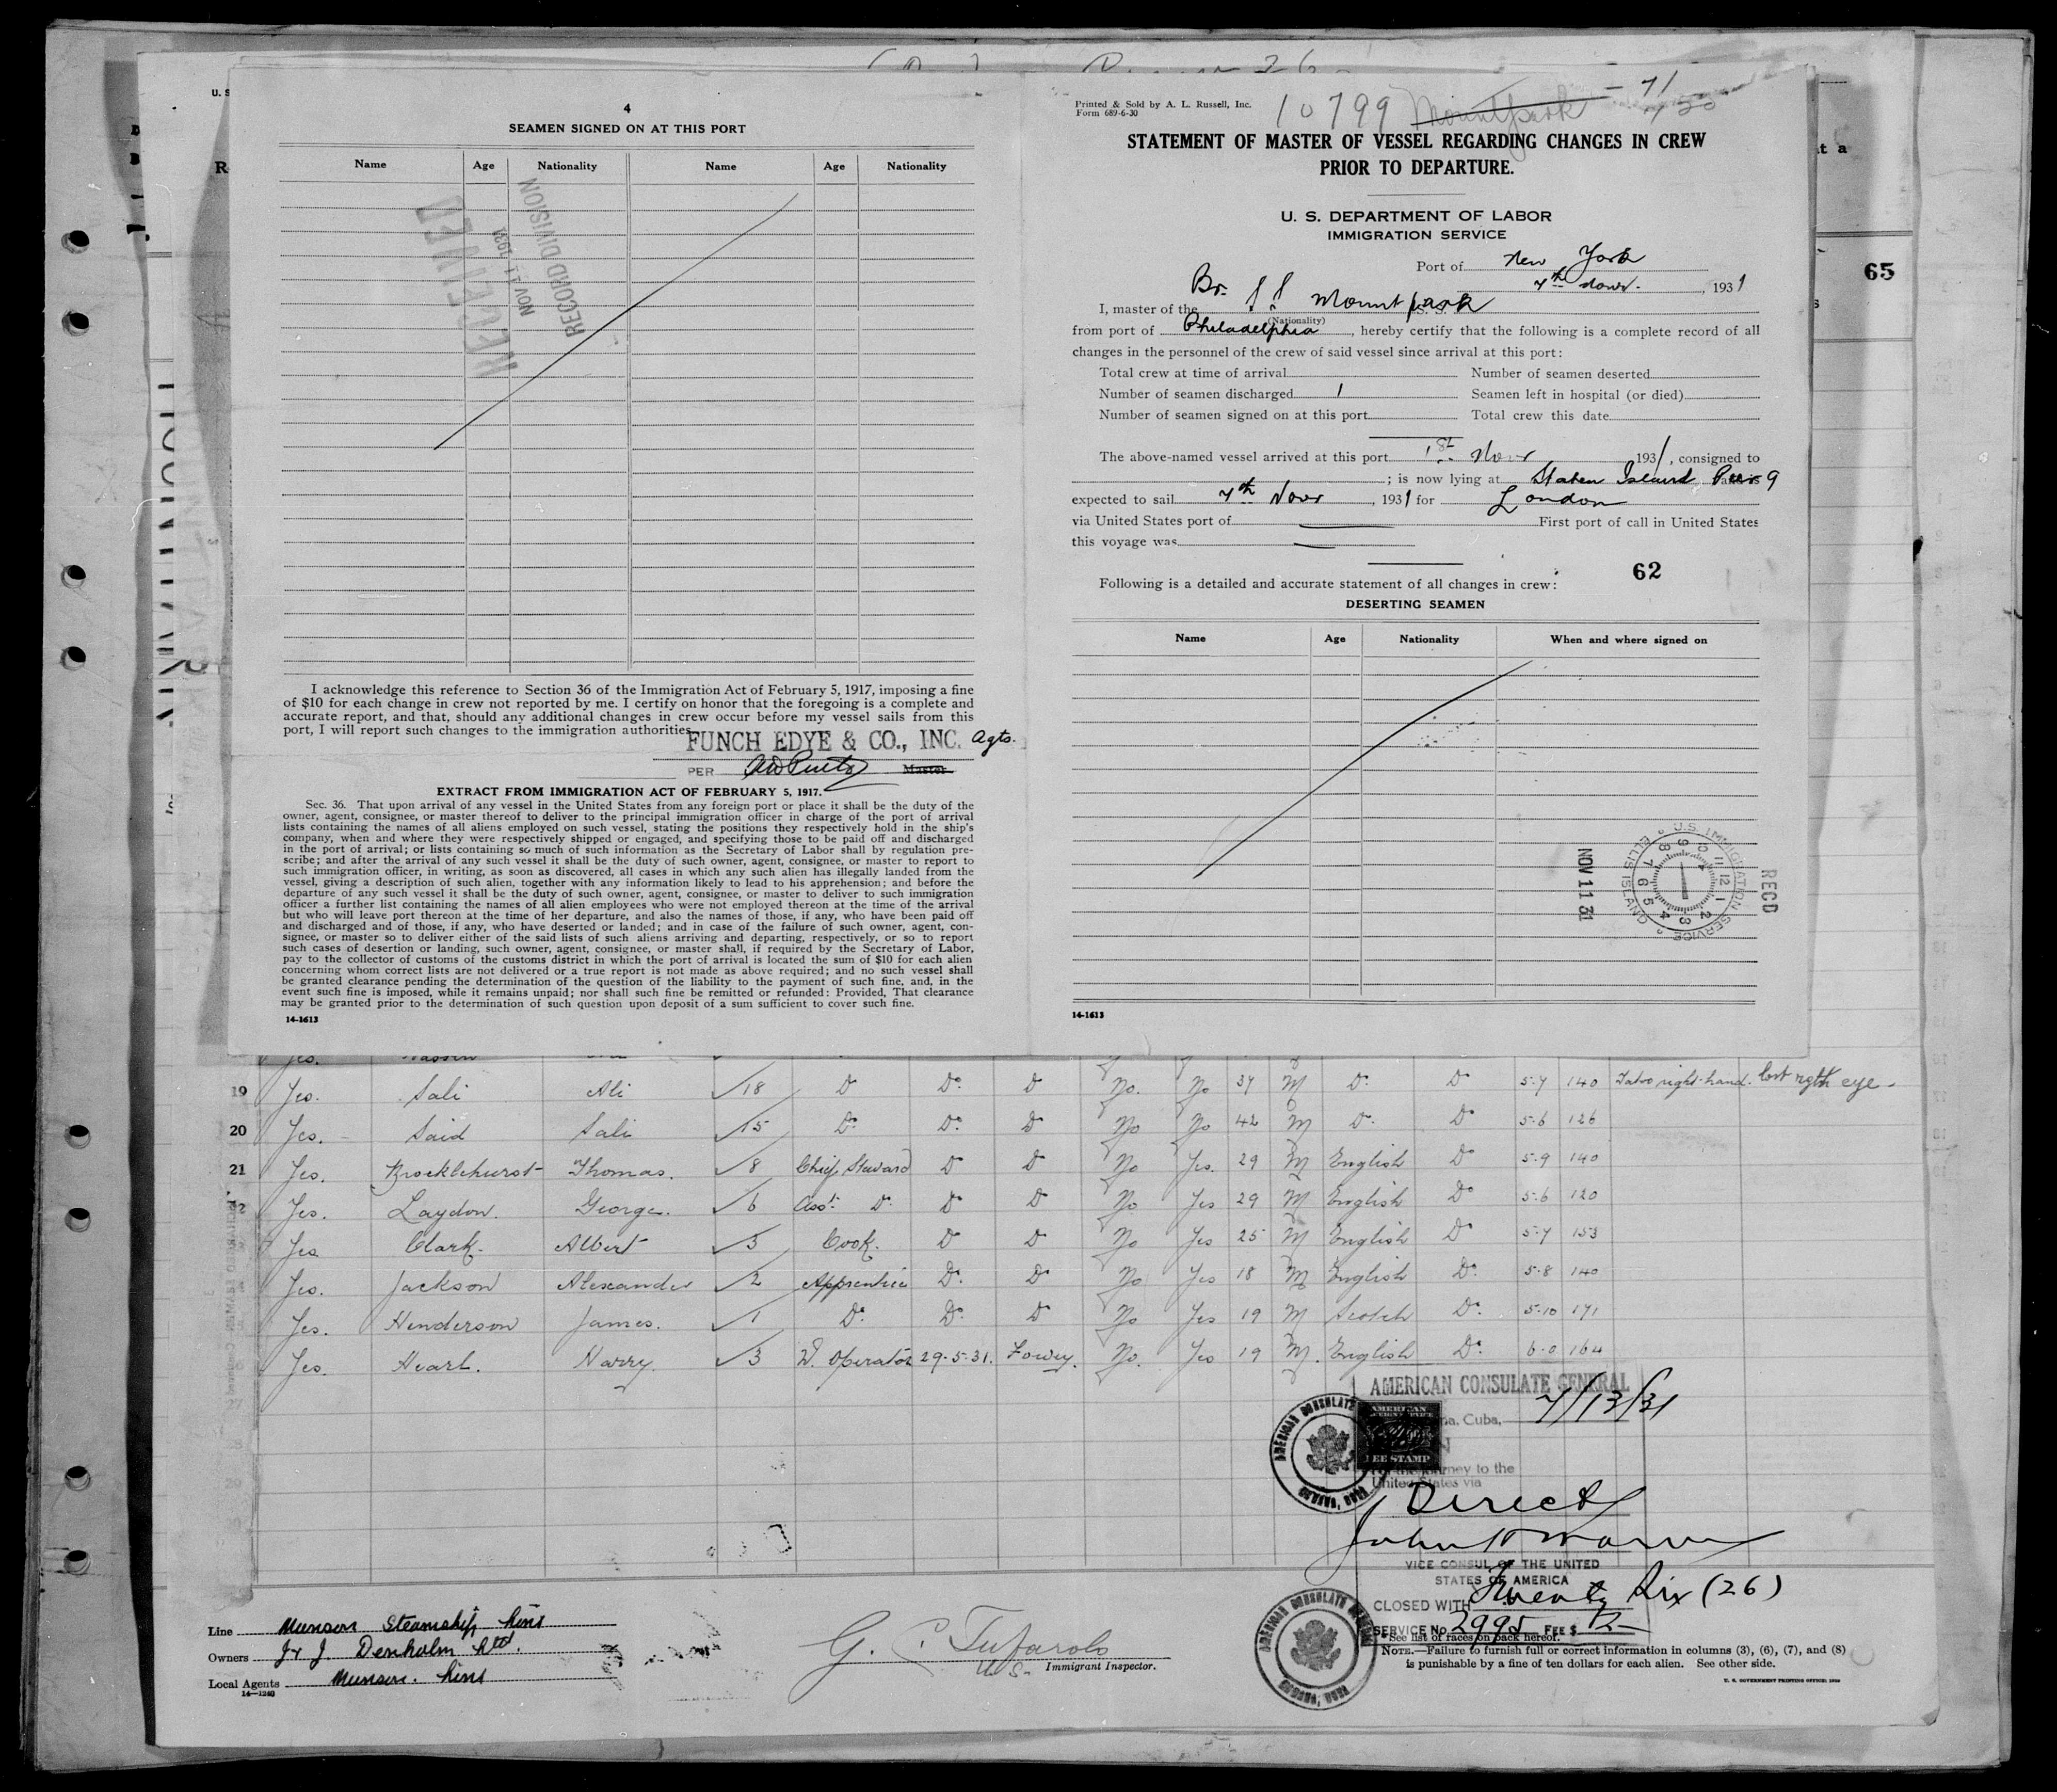 4
SEAMEN SIGNED ON AT THIS PORT
Name Age Nationality Name Age Nationality
RECEIVED
NOV 11 1931
RECORD DIVISION
I acknowledge this reference to Section 36 of the Immigration Act of February 5, 1917, imposing a fine
of $10 for each change in crew not reported by me. I certify on honor that the foregoing is a complete and
accurate report, and that, should any additional changes in crew occur before my vessel sails from this
port, I will report such changes to the immigration authorities
FUNCH EDYE & CO., INC. Agts.
PER Master
EXTRACT FROM IMMIGRATION ACT OF FEBRUARY 5, 1917.
Sec. 36. That upon arrival of any vessel in the United States from any foreign port or place it shall be the duty of the
owner, agent, consignee, or master thereof to deliver to the principal immigration officer in charge of the port of arrival
lists containing the names of all aliens employed on such vessel, stating the positions they respectively hold in the ship's
company, when and where they were respectively shipped or engaged, and specifying those to be paid off and discharged
in the port of arrival; or lists containing so much of such information as the Secretary of Labor shall by regulation pre-
scribe; and after the arrival of any such vessel it shall be the duty of such owner, agent, consignee, or master to report to
such immigration officer, in writing, as soon as discovered, all cases in which any such alien has illegally landed from the
vessel, giving a description of such alien, together with any information likely to lead to his apprehension; and before the
departure of any such vessel it shall be the duty of such owner, agent, consignee, or master to deliver to such immigration
officer a further list containing the names of all alien employees who were not employed thereon at the time of the arrival
but who will leave port thereon at the time of her departure, and also the names of those, if any, who have been paid off
and discharged and of those, if any, who have deserted or landed; and in case of the failure of such owner, agent, con-
signee, or master so to deliver either of the said lists of such aliens arriving and departing, respectively, or so to report
such cases of desertion or landing, such owner, agent, consignee, or master shall, if required by the Secretary of Labor,
pay to the collector of customs of the customs district in which the port of arrival is located the sum of $10 for each alien
concerning whom correct lists are not delivered or a true report is not made as above required; and no such vessel shall
be granted clearance pending the determination of the question of the liability to the payment of such fine, and, in the
event such fine is imposed, while it remains unpaid; nor shall such fine be remitted or refunded: Provided, That clearance
may be granted prior to the determination of such question upon deposit of a sum sufficient to cover such fine.
14-1613
Printed & Sold by A. L. Russell, Inc.
Form 689-6-30
10799 Mountpark - 71
STATEMENT OF MASTER OF VESSEL REGARDING CHANGES IN CREW
PRIOR TO DEPARTURE.
U. S. DEPARTMENT OF LABOR
IMMIGRATION SERVICE
Port of New York
7th Novr. , 1931
I, master of the Br. S S Mountpark
(Nationality)
from port of Philadelphia , hereby certify that the following is a complete record of all
changes in the personnel of the crew of said vessel since arrival at this port:
Total crew at time of arrival Number of seamen deserted
Number of seamen discharged 1 Seamen left in hospital (or died)
Number of seamen signed on at this port Total crew this date
The above-named vessel arrived at this port 1st Novr 1931, consigned to
; is now lying at Staten Island Pier 9
expected to sail 7th Novr , 1931 for London
via United States port of First port of call in United States
this voyage was
62
Following is a detailed and accurate statement of all changes in crew:
DESERTING SEAMEN
Name Age Nationality When and where signed on
U.S. IMMIGRATION SERVICE ELLIS ISLAND
RECD
NOV 11 31
14-1613
65
19 Yes. Sali Ali 18 D Do D No. No 37 M D. D 5-7 140 Tatoo right-hand. lost right eye -
20 Yes. Said Sali 15 Do Do D No No 42 M D. Do 5-6 126
21 Yes. Brocklehurst Thomas. 8 Chief Steward D D No Yes. 29 M English Do 5-9 140
Yes. Laydon. George. 6 Asst. D. Do D No Yes 29 M English Do 5-6 120
Yes Clark. Albert 5 Cook. D D No Yes 25 M English Do 5-7 153
Yes. Jackson Alexander 2 Apprentice D. Do No Yes 18 M English D. 5-8 140
Yes. Henderson James. 1 Do Do D No Yes 19 M Scotch Do 5-10 171
Yes. Hearl. Harry. 3 W. Operator 29-5-31. Fowey. No. Yes 19 M. English Do 6-0 164
AMERICAN CONSULATE GENERAL
na, Cuba, 7/13/31
AMERICAN
FEE STAMP
AMERICAN CONSULATE
For the journey to the
United States via
Direct
VICE CONSUL OF THE UNITED
STATES OF AMERICA
CLOSED WITH Twenty Six (26)
SERVICE No 2995 FEE $ 2-
*See list of races on back hereof.
NOTE.—Failure to furnish full or correct information in columns (3), (6), (7), and (8)
is punishable by a fine of ten dollars for each alien. See other side.
U. S. GOVERNMENT PRINTING OFFICE: 1929
Line Munson Steamship Line
Owners J & J. Denholm Ltd.
Local Agents Munson Line
14-1240
G. C. Tufarolo
U S. Immigrant Inspector.